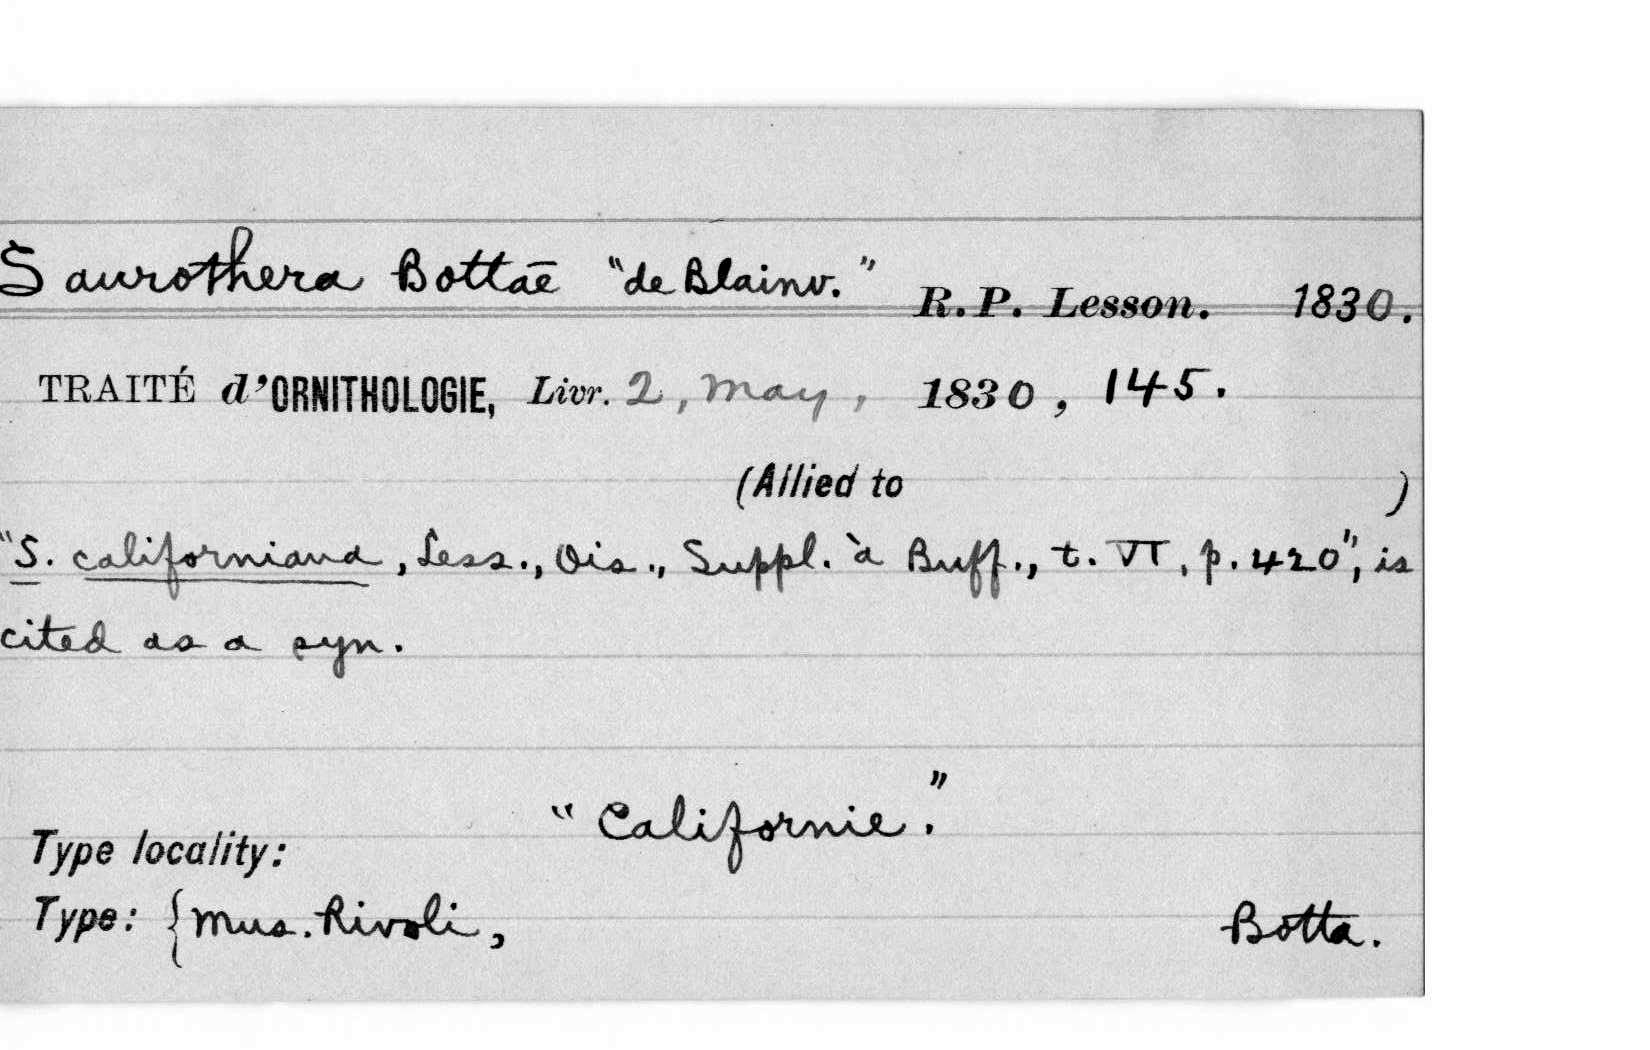 Saurothera Bottae "de Blainv." R. P. Lesson. 1830.
TRAITÉ d'ORNITHOLOGIE, Livr. 2, May, 1830, 145.
(Allied to )
"S. californiana, Less., Ois., Suppl. à Buff., t. VI, p. 420", is
cited as a syn.
"Californie."
Type locality:
Type: {Mus. Rivoli, Botta.